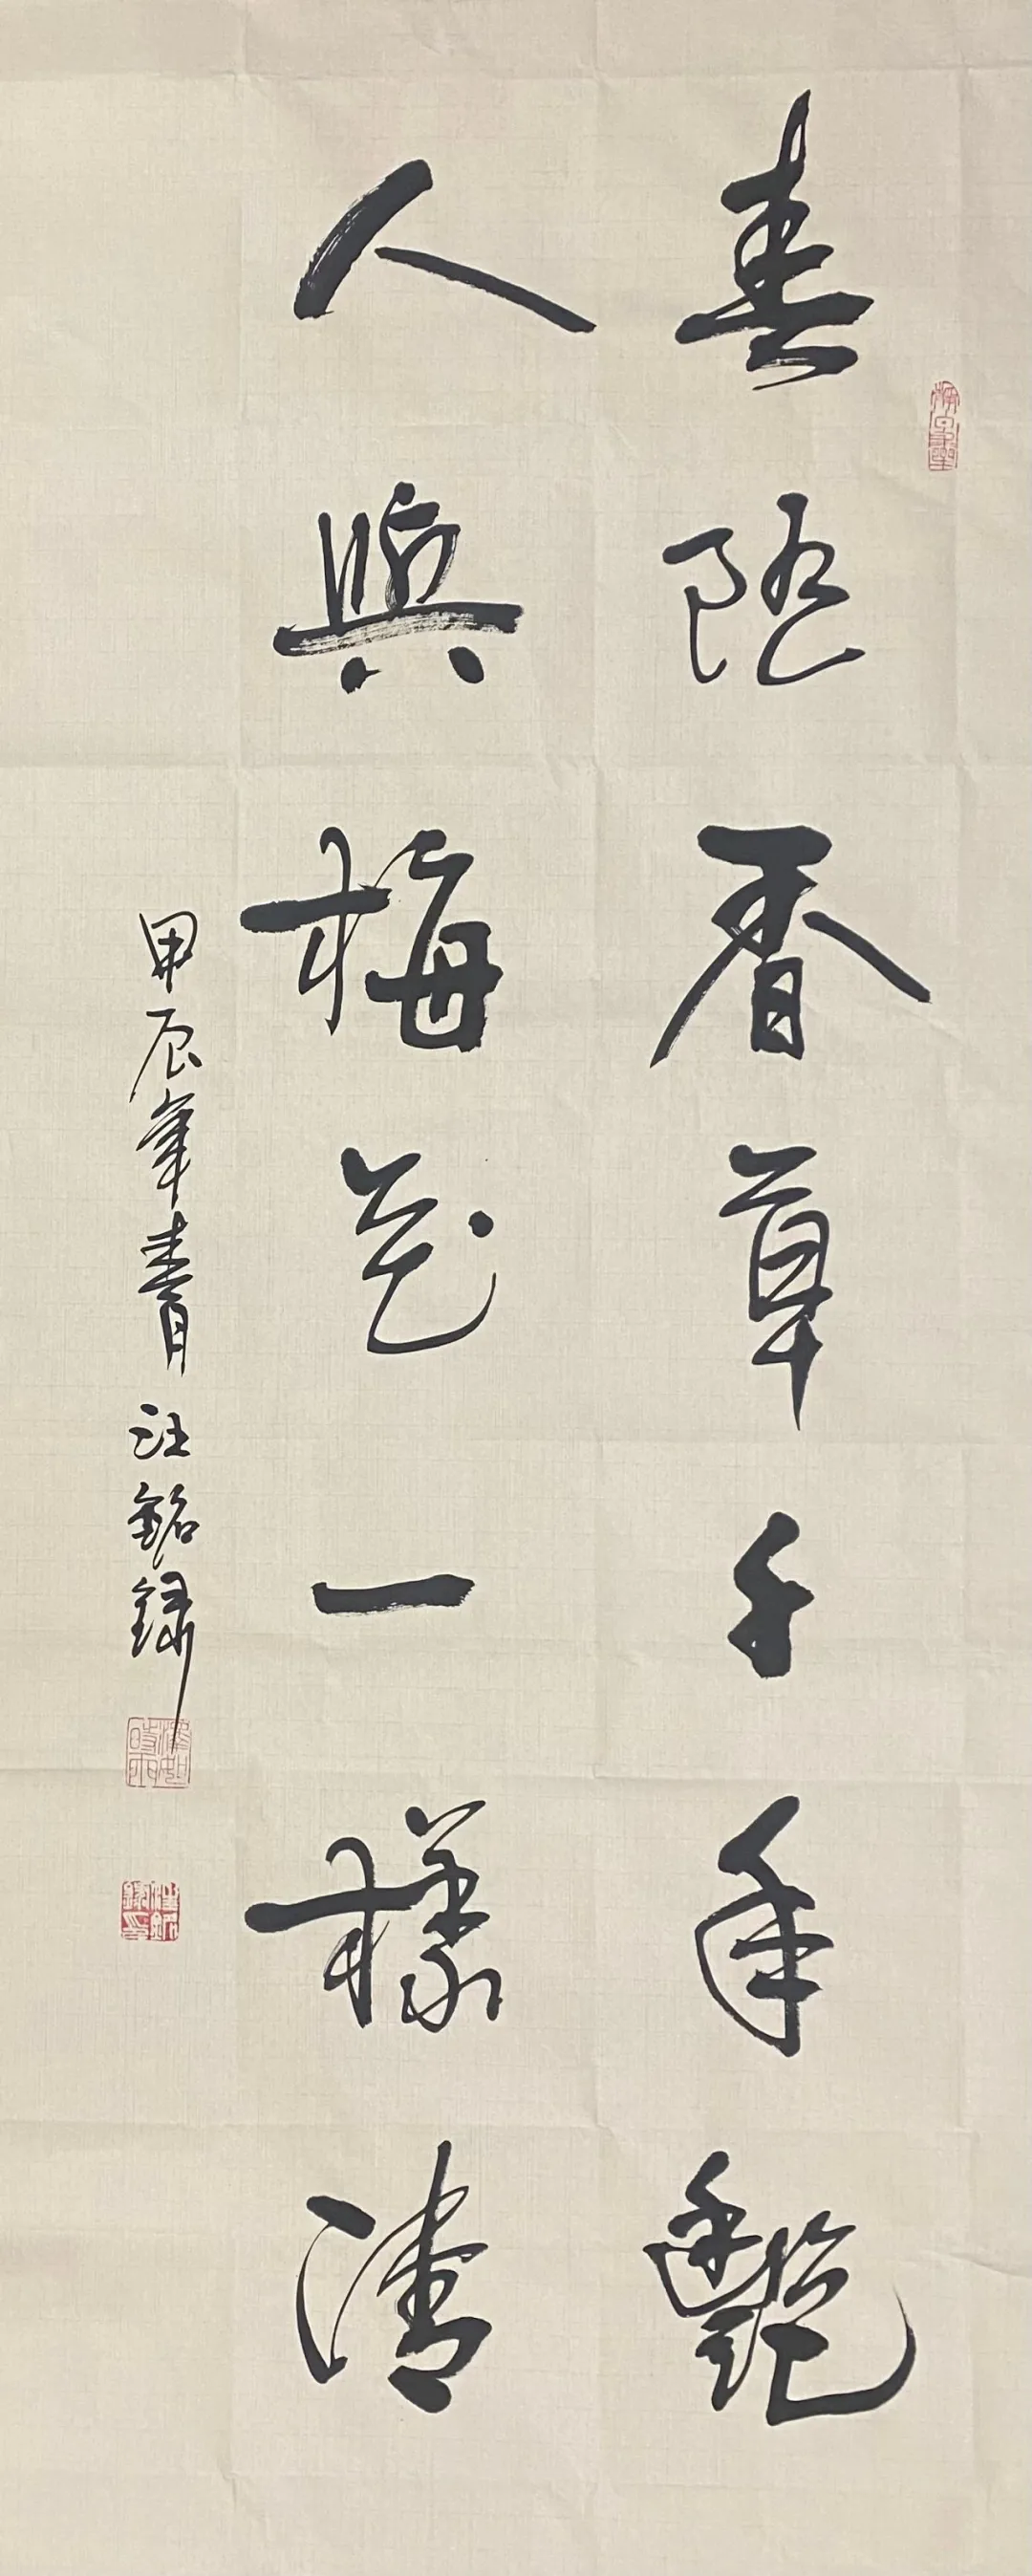 春隨香草千年艷
人與梅花一樣清
甲辰年春月 汪銘録